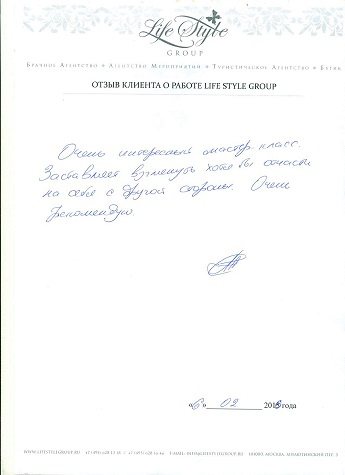 Life Style
GROUP
Брачное Агентство • Агентство Мероприятий • Туристическое Агентство • Бутик
ОТЗЫВ КЛИЕНТА О РАБОТЕ LIFE STYLE GROUP
Очень интересный мастер класс.
Заставляет взглянуть хотя бы отчасти
на себя с другой стороны. Очень
рекомендую.
«6» 02 2013 года
WWW.LIFESTYLEGROUP.RU